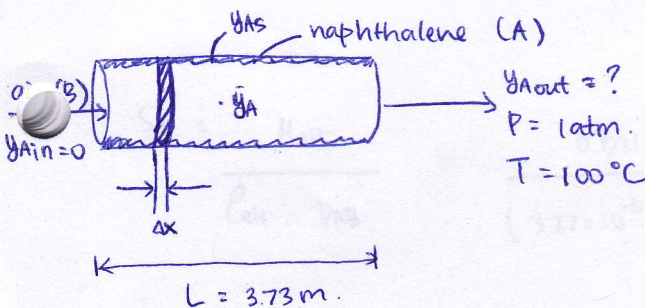 yAs naphthalene (A)
B)
yAin=0
ȳA
yAout = ?
P = 1atm.
T = 100°C
Δx
L = 3.73 m.